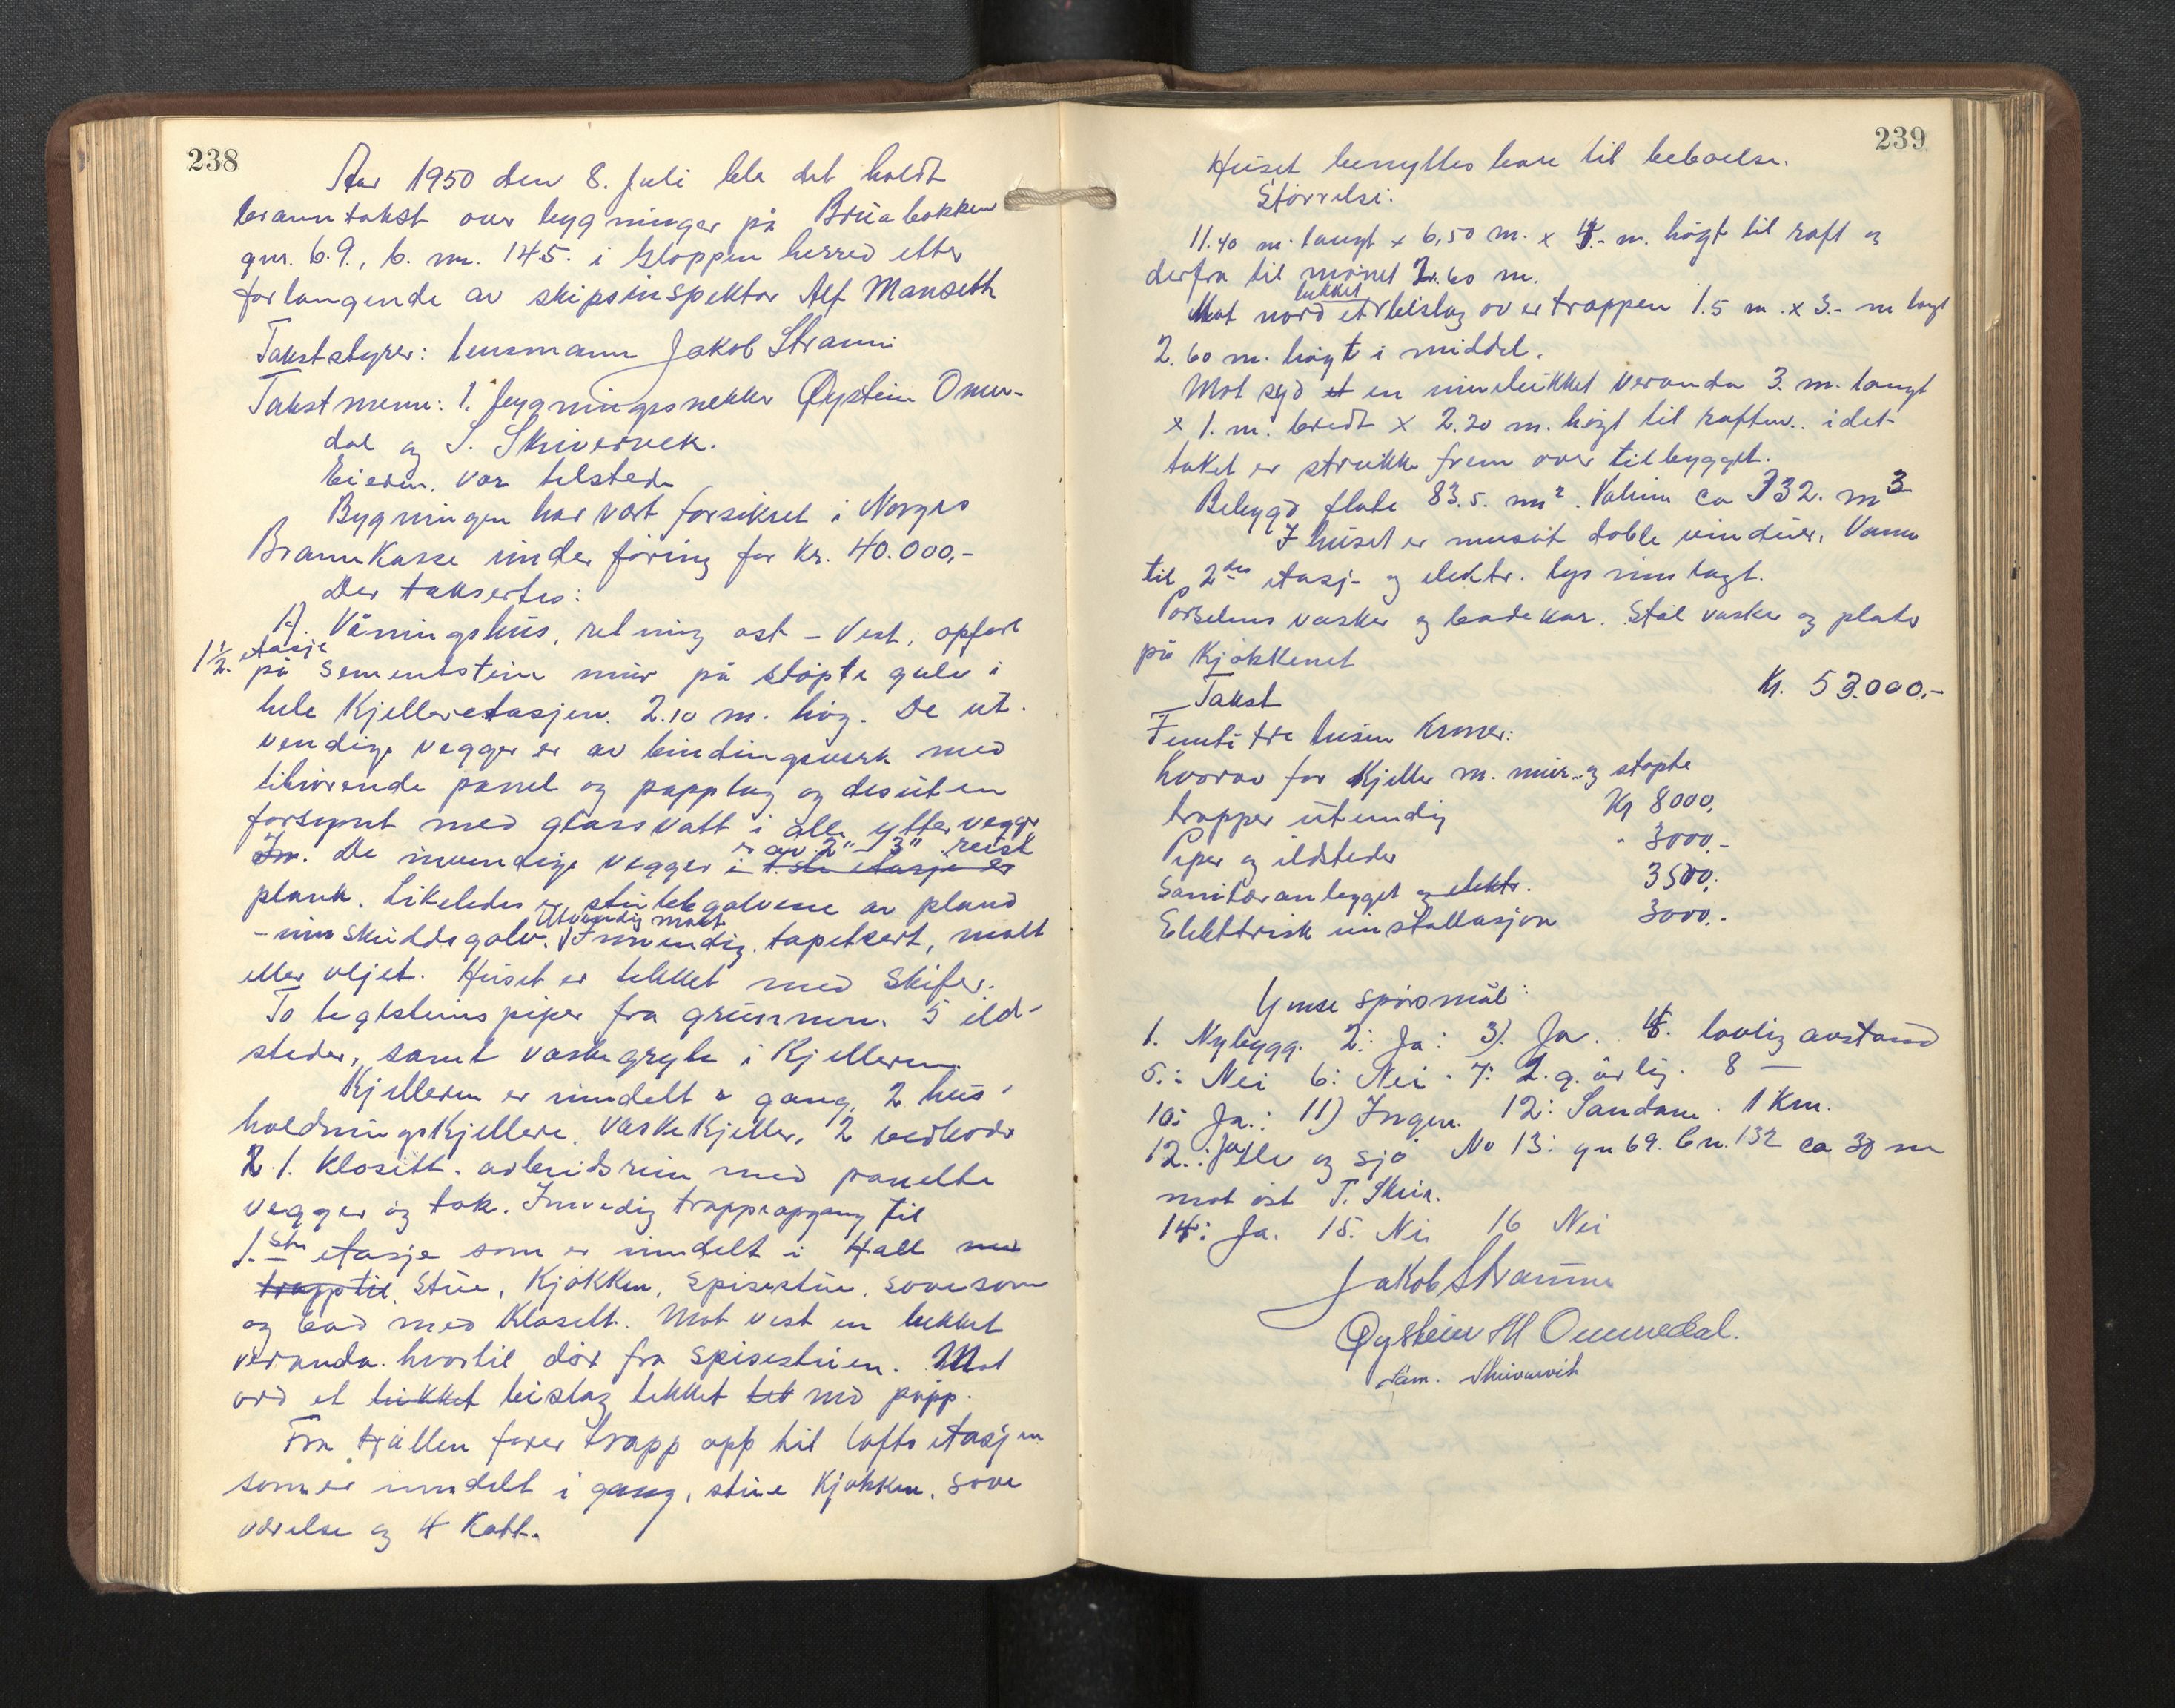 238
Aar 1950 den 8. Juli ble det holdt
branntakst over bygninger på Bruabakken
gnr. 69., b. nr. 145. i Gloppen herred etter
forlangende av skipsinspektør Alf Manseth
Takststyrer: lensmann Jakob Straume
Takstmenn: 1. bygningssnekker Øystein Omme-
dal og S. Skivervek.
Eieren var tilstede
Bygningen har vært forsikret i Norges
BrannKasse under föring for Kr. 40.000,-
Der taksertes:
1). Våningshus, retning ost – Vest, opført
1½ etasje
på sementstein mur på støpte gulv i
hele Kjelleretasjen. 2.10 m. høg. De ut-
vendige vegger er av bindingsverk med
tilhørende panel og papplag og desuten
forsynt med glassvatt i alle yttervegger
Inn. De innvendige vegger i 1.ste etasje er
er av 2"-3" reist
plank. Likeledes er stubbegolvene av plank
Utvendig malt
- innskuddsgolv. Innvendig tapetsert, malt
eller oljet. Huset er tekket med Skifer.
To teglsteinspiper fra grunnen. 5 ild-
steder, samt vaskegryte i Kjelleren.
Kjelleren er inndelt i gang, 2 hus-
holdningsKjellere, VaskeKjeller, 2 vedboder
1. Klosett. arbeidsrum med panelte
vegger og tak. Innvedig trappeopgang til
1.ste etasje som er inndelt i Hall med
trapp til, Stue, Kjøkken, Spisestue, soverom
og bad med Klosett. Mot vest en lukket
veranda hvortil dør fra spisestuen. Mot
ord et lukket bislag tekket tet med papp.
Fra Hallen fører trapp opp til loftsetasjen
som er inndelt i gang, stue Kjøkken, sove
værelse og 4 Kott.
239
Huset benyttes bare til beboelse.
Størrelse:
11.40 m. langt x 6,50 m. x 4.- m. högt til raft og
derfra til mønet 2.60 m.
lukket
Mot nord et bislag over trappen 1.5 m. x 3.- m langt
2.60 m. høgt i middel.
Mot syd et en innelukket veranda 3. m. langt
x 1. m. bredt x 2.20 m. högt til raften.. idet
taket er strukke frem over tilbygget.
Bebygd flate 83.5. m². Volum ca 332. m³
I huset er innsat doble vinduer. Vann
til 2den etasj- og elektr. lys innlagt.
Porselens vasker og badekar. Stål vasker og plater
på Kjøkkenet
Takst Kr. 53.000,-
Femti tre tusen Kroner:
hvorav for Kjeller m. mur.. og støpte
trapper utvendig Kr 8000,
Piper og ildsteder " 3000.-
Sanitæranlegget og elektr. 3500,-
Elektrisk installasjon 3000.-
Ymse spørsmål:
1. Nybygg. 2: Ja: 3). Ja. 4. lovlig avstand
5.: Nei 6: Nei. 7: 2. g. årlig. 8 —
10: Ja.: 11) Ingen. 12: Sandane. 1 Km.
12.: Ja Elv og sjø No 13: gn 69. bn. 132 ca 30 m
mot øst T. Skei.
14: Ja. 15. Nei 16 Nei
Jakob Straume
Øystein M Ommedal.
Sam. Skivervik